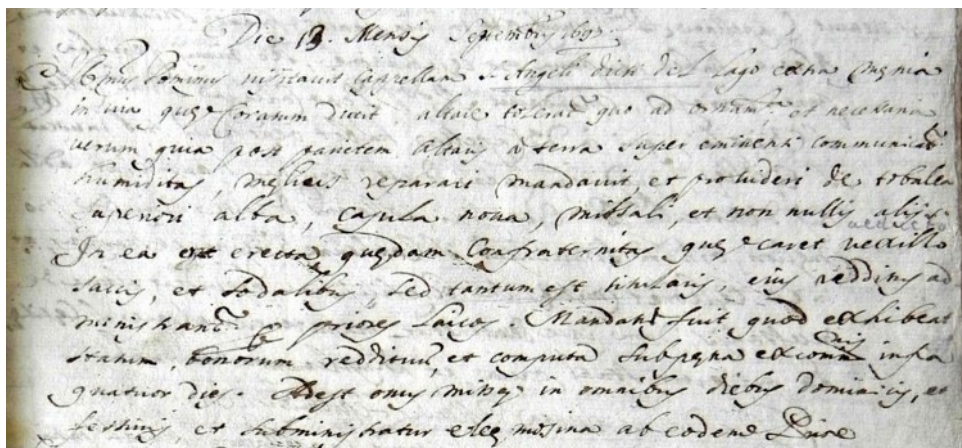 Die 13. Mensis Septembris 169
Ill.mus Dominus visitavit Cappellam S. Angeli dicti del Lago extra menia
in via quę Coratum ducit altare tolerat.r quo ad ornam.ta et necessaria
verum quia post parietem Altaris a terra super eminenti communicat.r
humiditas, melius reparari mandavit, et provideri de tobalea
superiori alba, casula nova, missali, et non nullis alijs
In ea est erecta quędam Confraternitas quę caret vexillo
saccis, et sodalibus, sed tantum est titularis, eius redditus ad
ministrant.r per priores laicos. Mandat. fuit quod exhibeat
statum bonorum, reddituũ, et computa sub pęna excom.nis infra
quatuor dies. Adest onus missę in omnibus diebus dominicis, et
festivis, et subministratur eleęmosina ab eodem Priore